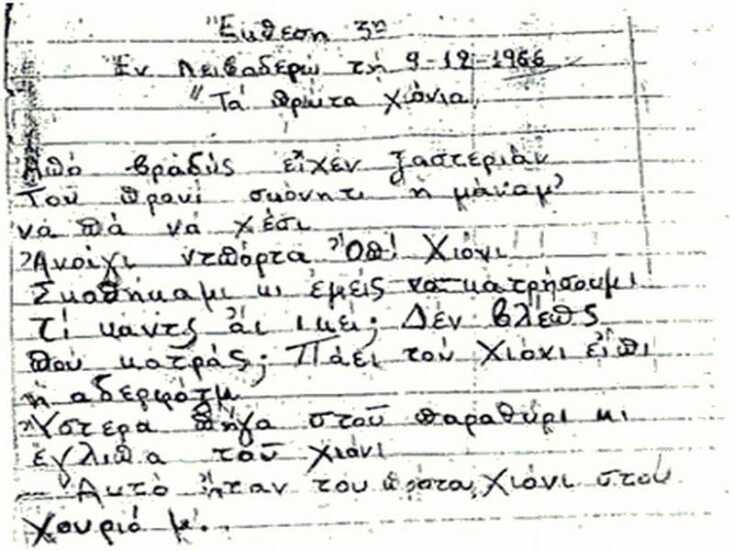 Ἔκθεση 3η
Ἐν Λειβαδερῷ τῇ 9-12-1966
"Τά πρώτα χιόνια
Ἀπό βραδύς εἶχεν ξαστεριάν
Τοῦ πρανί σκόνητι ἡ μάναμ'
νά πά νά χέσι
Ἀνοίχι ντπόρτα Ὀπ! Χιόνι
Σκοθήκαμι κι ἐμείς να κατρήσουμι
Τί κάντς ἀι ικεί; Δέν βλέπς
που κατράς; Πάει τού χιόνι εἶπι
ἡ αδερφότμ
Ὕστερα πήγα στοῦ παραθύρι κι
ἔγλιπα τοῦ χιόνι
Αὐτό ἦταν του πρώτα χιόνι στου
χουριό μ'..